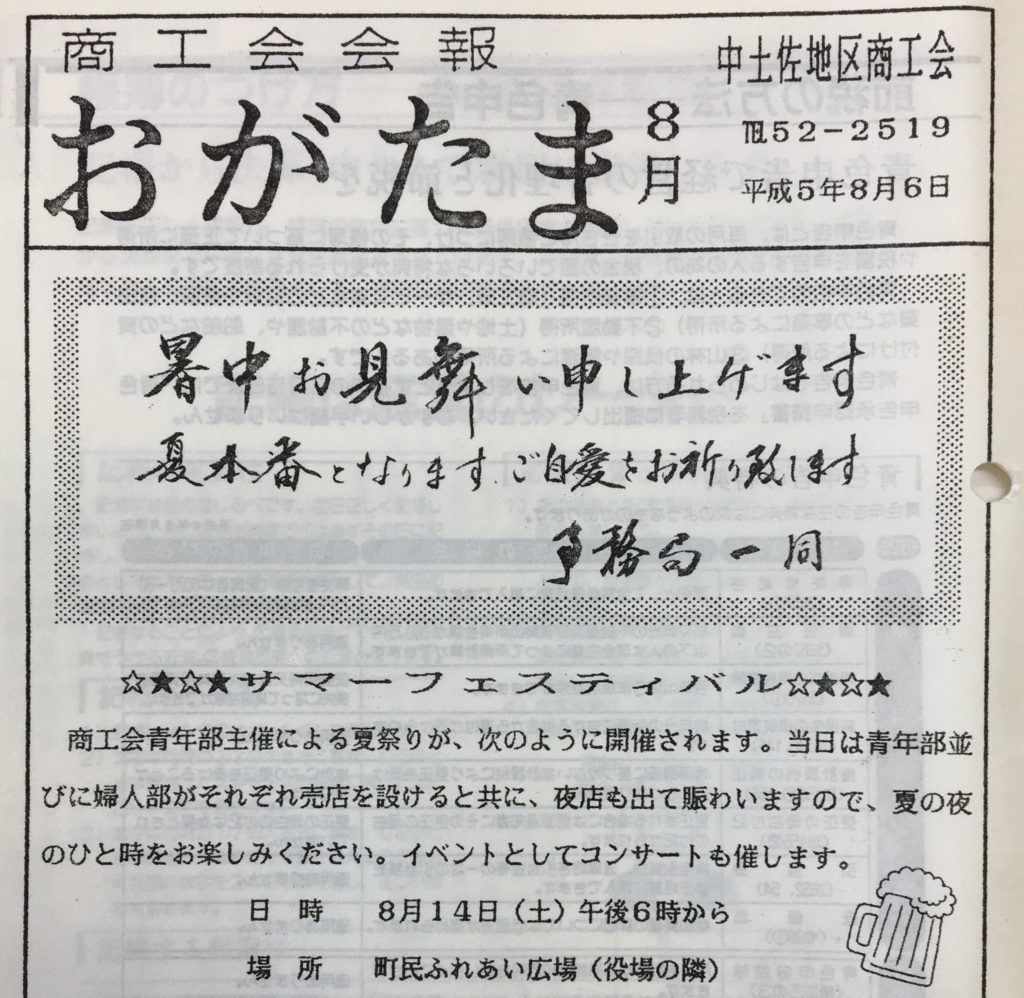 商工会会報
中土佐地区商工会
おがたま
8月
℡52-2519
平成5年8月6日
暑中お見舞い申し上げます
夏本番となります ご自愛をお祈り致します
事務局一同
☆★☆★サマーフェスティバル☆★☆★
商工会青年部主催による夏祭りが、次のように開催されます。当日は青年部並
びに婦人部がそれぞれ売店を設けると共に、夜店も出て賑わいますので、夏の夜
のひと時をお楽しみください。イベントとしてコンサートも催します。
日 時 8月14日(土)午後6時から
場 所 町民ふれあい広場(役場の隣)